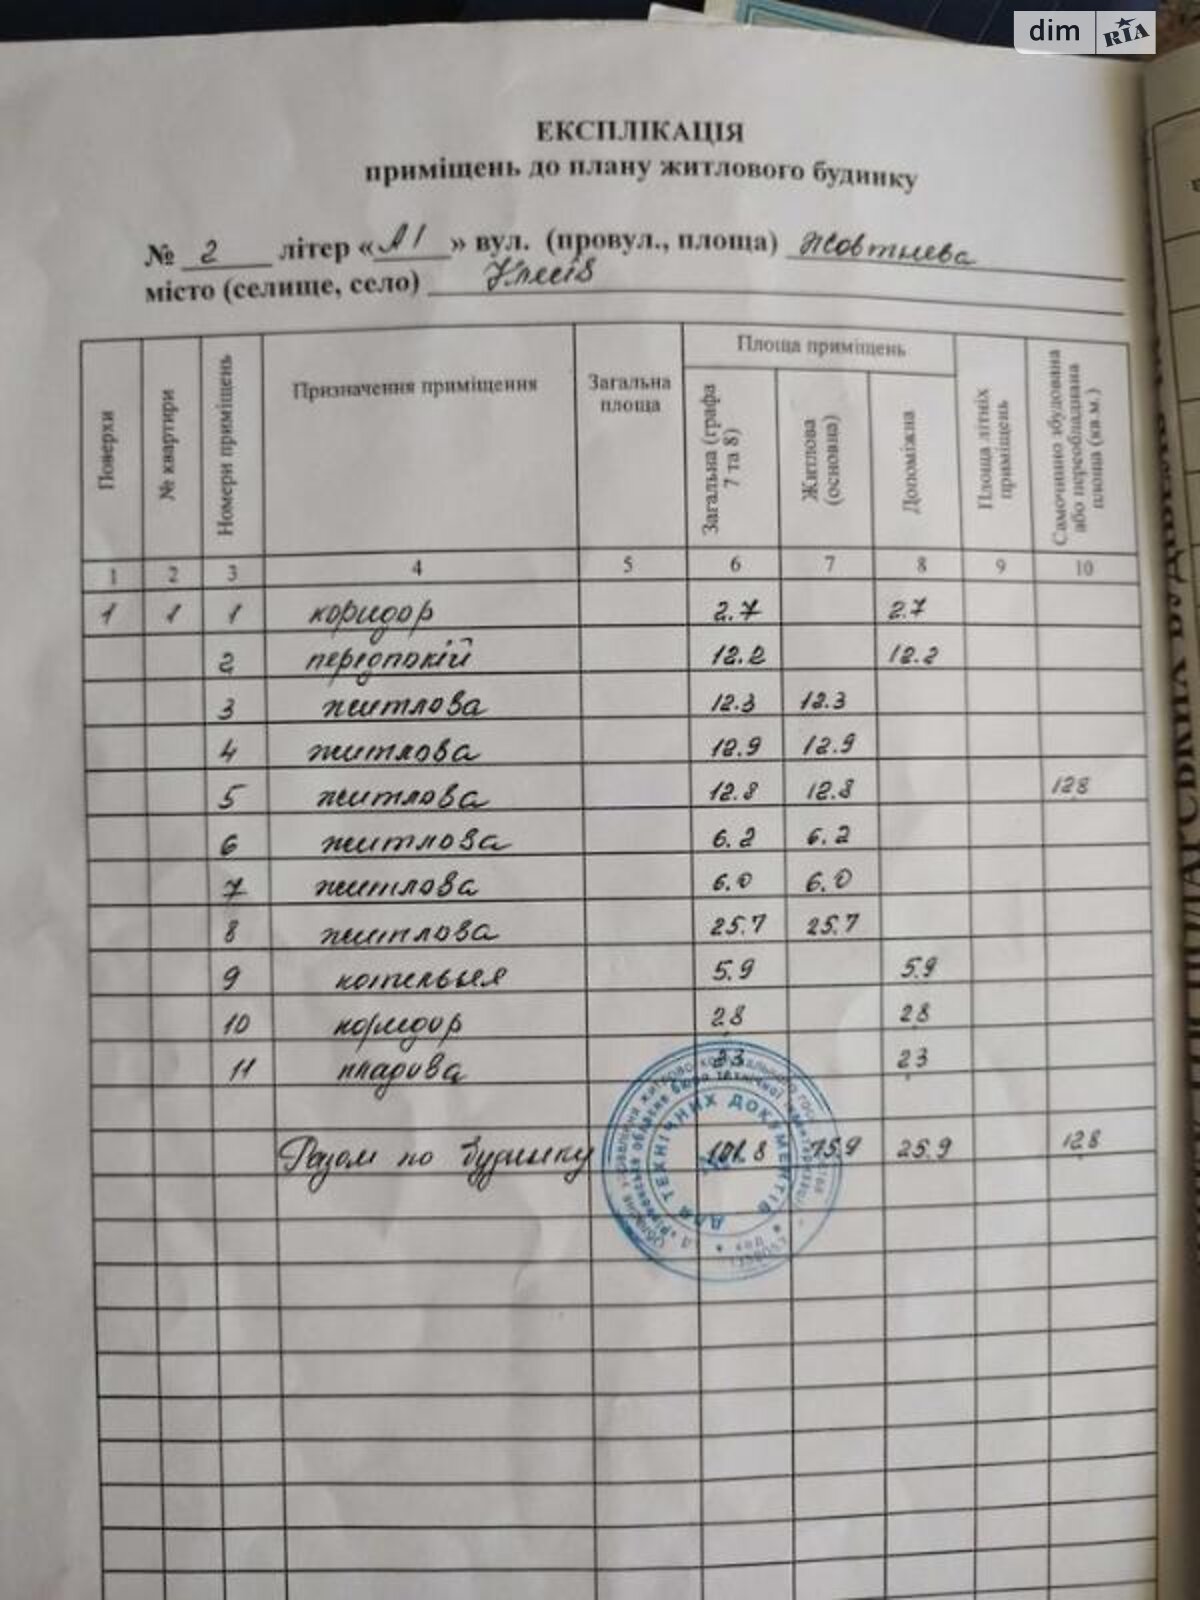 dim RIA
ЕКСПЛІКАЦІЯ
приміщень до плану житлового будинку
№ 2 літер «А1» вул. (провул., площа) Жовтнева
місто (селище, село) Клесів
Поверхи № квартири Номери приміщень Призначення приміщення Загальна площа Площа приміщень Загальна (графа 7 та 8) Житлова (основна) Допоміжна Площа літніх приміщень Самочинно збудована або переобладнана площа (кв.м.)
1 2 3 4 5 6 7 8 9 10
1 1 1 коридор 2.7 2.7
2 передпокій 12.2 12.2
3 житлова 12.3 12.3
4 житлова 12.9 12.9
5 житлова 12.8 12.8 12.8
6 житлова 6.2 6.2
7 житлова 6.0 6.0
8 житлова 25.7 25.7
9 котельня 5.9 5.9
10 коридор 2.8 2.8
11 кладова 2.3 2.3
Разом по будинку 101.8 75.9 25.9 12.8
ДЛЯ ТЕХНІЧНИХ ДОКУМЕНТІВ